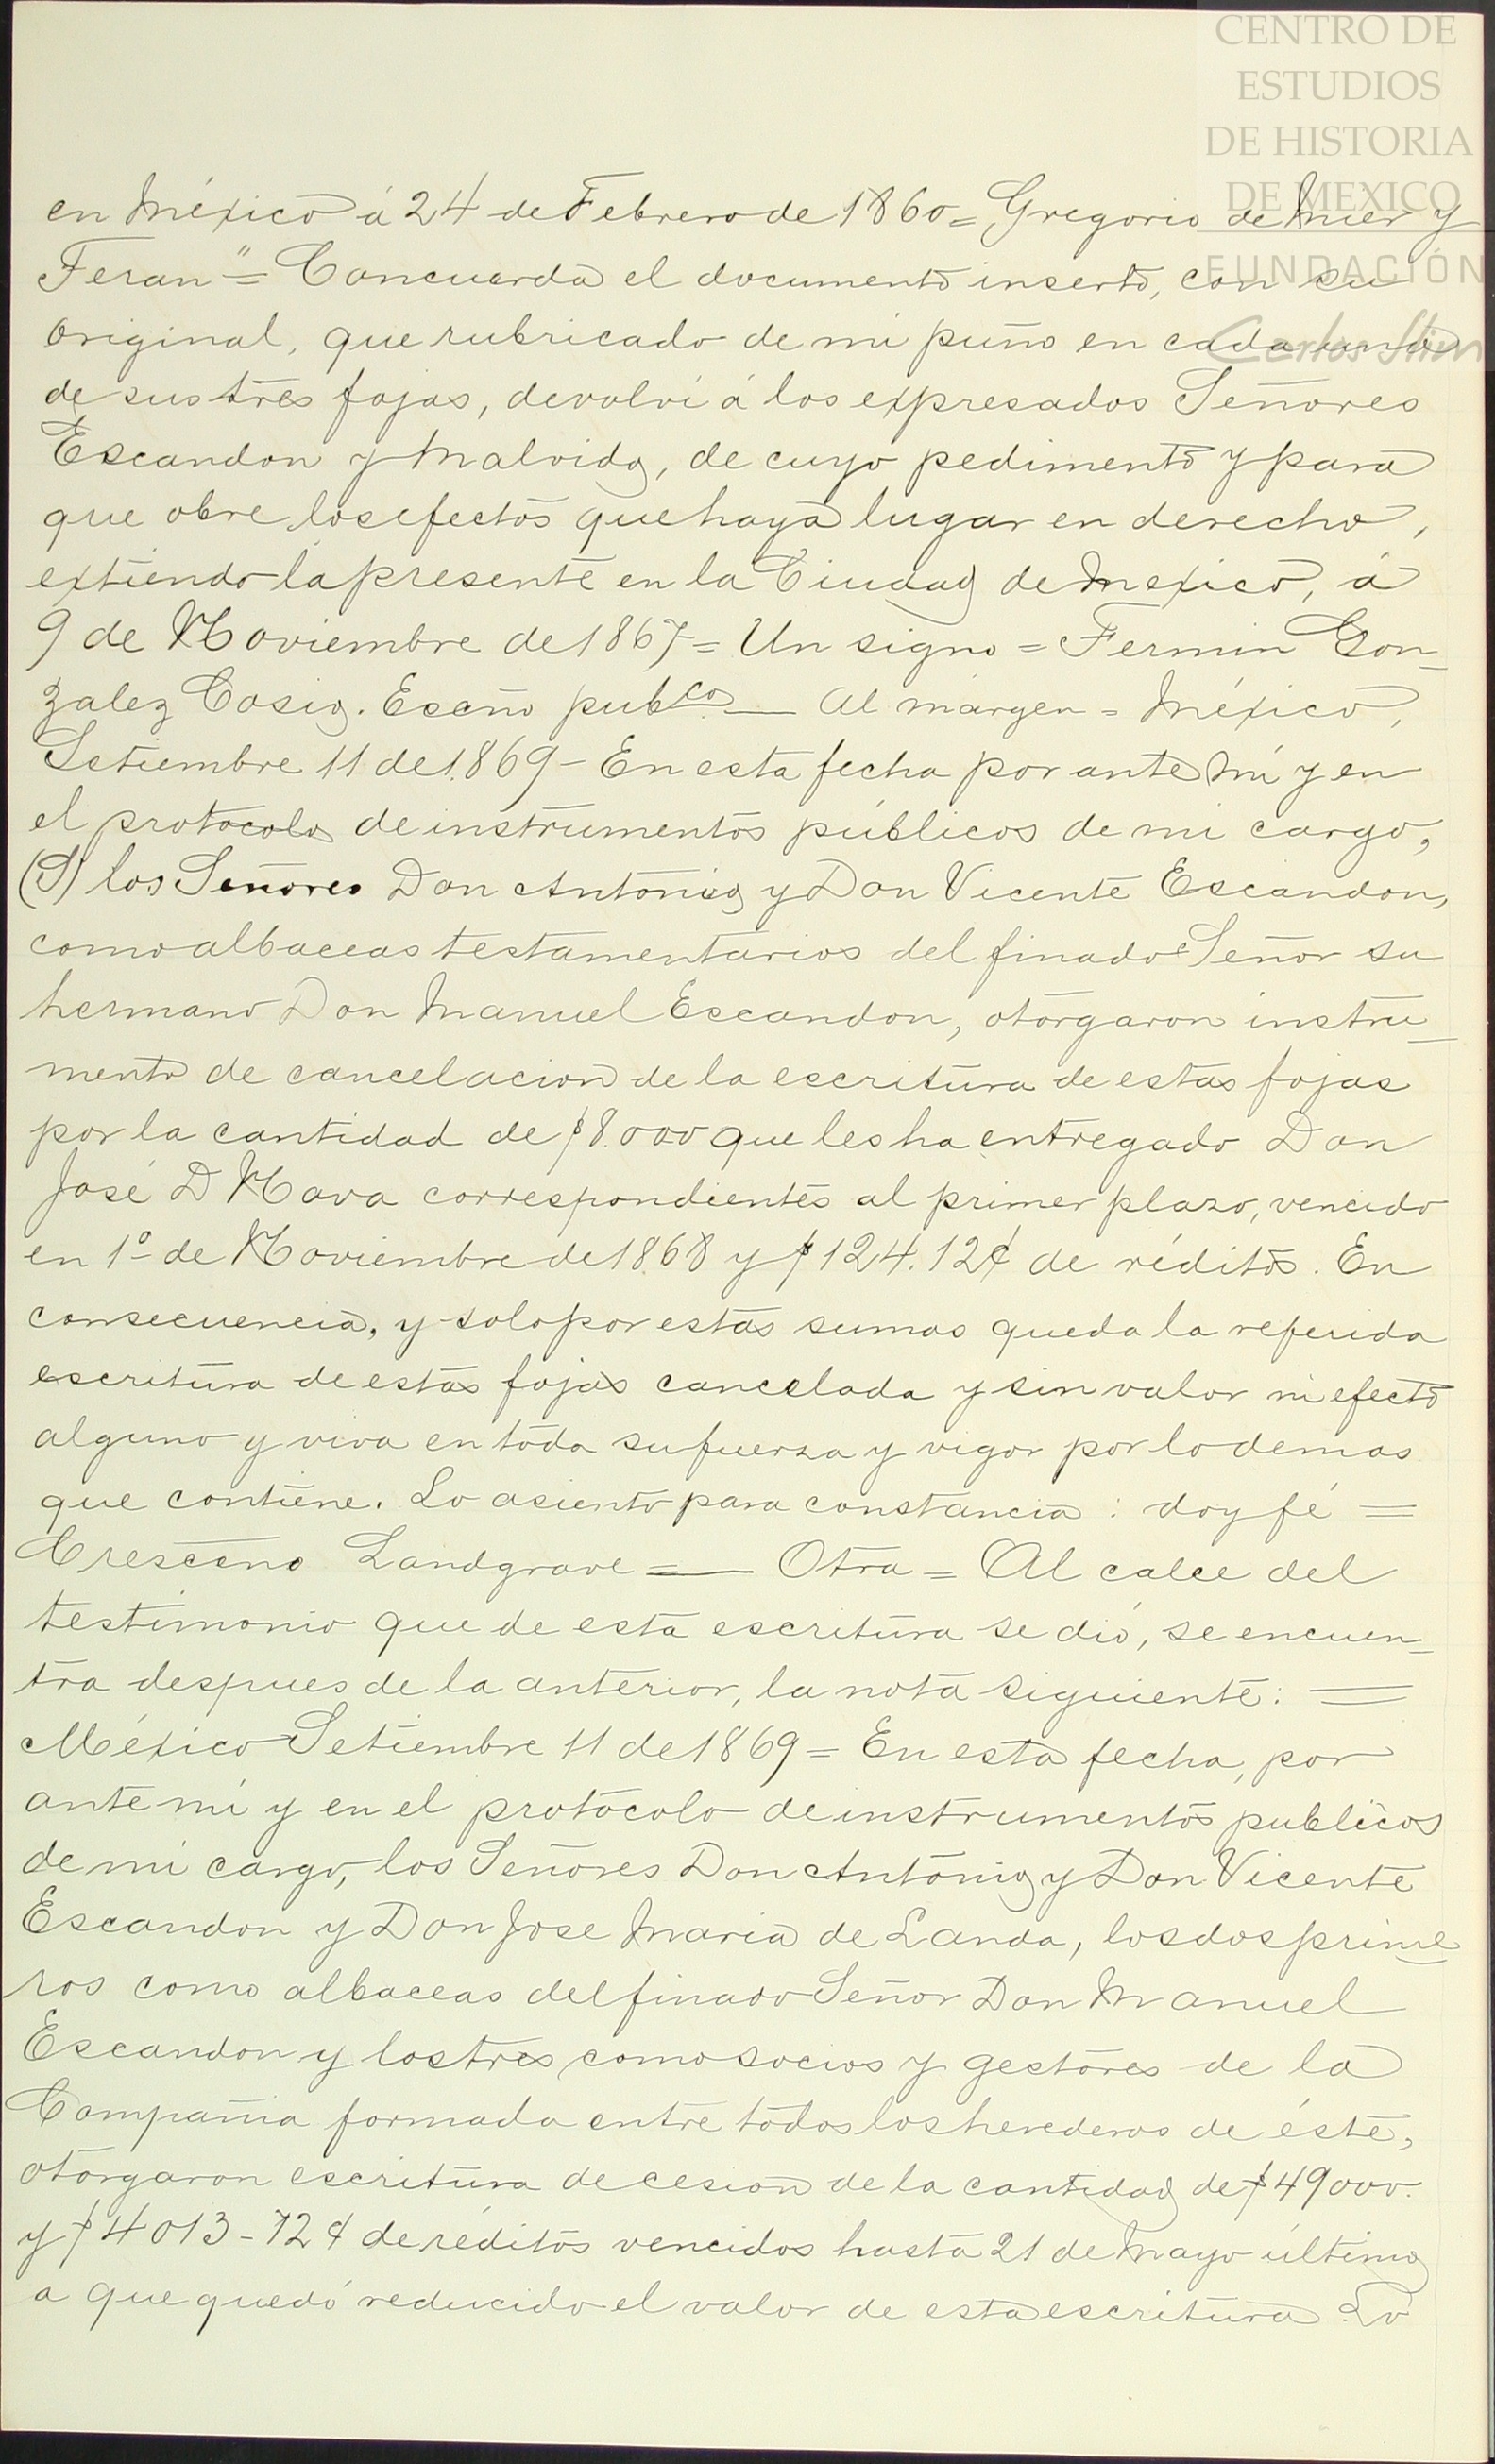 CENTRO DE
ESTUDIOS
DE HISTORIA
DE MEXICO
FUNDACIÓN
Carlos Slim
en México á 24 de Febrero de 1860 = Gregorio de Mier y
Teran" = Concuerda el documento inserto, con su
original, que rubricado de mi puño en cada una
de sus tres fojas, devolví á los expresados Señores
Escandon y Malvido, de cuyo pedimento y para
que obre los efectos que haya lugar en derecho,
extiendo la presente en la Ciudad de Mexico, á
9 de Noviembre de 1867 = Un signo = Fermin Gon-
zalez Cosio. Escño pubco — Al márgen = México,
Setiembre 11 de 1869 - En esta fecha por ante mí y en
el protocolo de instrumentos públicos de mi cargo,
(S) los Señores Don Antonio y Don Vicente Escandon,
como albaceas testamentarios del finado Señor su
hermano Don Manuel Escandon, otorgaron instru-
mento de cancelacion de la escritura de estas fojas
por la cantidad de $8.000 que les ha entregado Don
José D Nava correspondientes al primer plazo, vencido
en 1º de Noviembre de 1868 y $124.12¢ de réditos. En
consecuencia, y solo por estas sumas queda la referida
escritura de estas fojas cancelada y sin valor ni efecto
alguno y viva en toda su fuerza y vigor por lo demas
que contiene. Lo asiento para constancia : doy fé =
Cresceno Landgrave = — Otra = Al calce del
testimonio que de esta escritura se dió, se encuen-
tra despues de la anterior, la nota siguiente: =
México Setiembre 11 de 1869 = En esta fecha, por
ante mi y en el protocolo de instrumentos publicos
de mi cargo, los Señores Don Antonio y Don Vicente
Escandon y Don Jose Maria de Landa, los dos prime-
ros como albaceas del finado Señor Don Manuel
Escandon y los tres como socios y gestores de la
Compañia formada entre todos los herederos de éste,
otorgaron escritura de cesion de la cantidad de $49000.
y $4013-72¢ de réditos vencidos hasta 21 de Mayo último
a que quedó reducido el valor de esta escritura. Lo